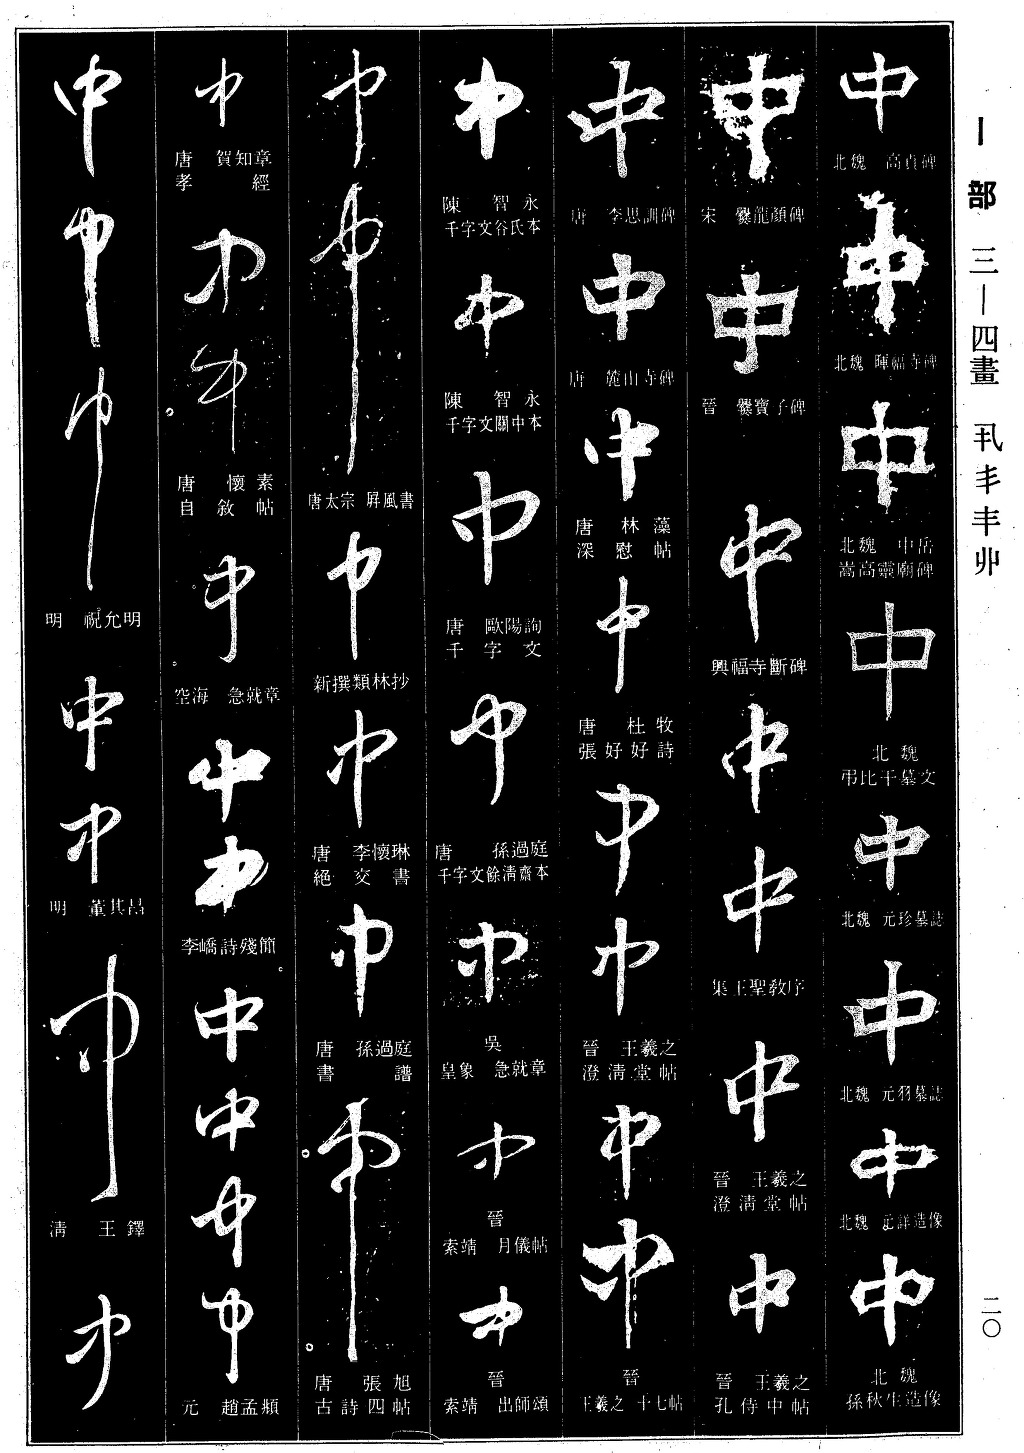 丨部 三—四畫 丮丯丰丣
二〇
中
北魏 高貞碑
中
北魏 暉福寺碑
中
北魏 中岳
嵩高靈廟碑
中
北魏
弔比干墓文
中
北魏 元珍墓誌
中
北魏 元羽墓誌
中
北魏 元詳造像
中
北魏
孫秋生造像
中
宋 爨龍顏碑
中
晉 爨寶子碑
中
興福寺斷碑
中
中
集王聖教序
中
晉 王羲之
澄清堂帖
中
晉 王羲之
孔侍中帖
中
唐 李思訓碑
中
唐 麓山寺碑
中
唐 林藻
深慰帖
中
唐 杜牧
張好好詩
中
中
晉 王羲之
澄清堂帖
中
中
晉
王羲之 十七帖
中
陳 智永
千字文谷氏本
中
陳 智永
千字文關中本
中
唐 歐陽詢
千字文
中
唐 孫過庭
千字文餘清齋本
中
吳
皇象 急就章
中
晉
索靖 月儀帖
中
晉
索靖 出師頌
中
中
唐太宗 屛風書
中
新撰類林抄
中
唐 李懷琳
絕交書
中
唐 孫過庭
書譜
中
唐 張旭
古詩四帖
中
唐 賀知章
孝經
中
中
唐 懷素
自敘帖
中
空海 急就章
中
中
李嶠詩殘簡
中
中
中
中
元 趙孟頫
中
中
中
明 祝允明
中
中
明 董其昌
中
淸 王鐸
中